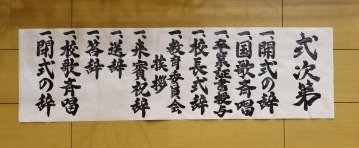 式次第
一、開式の辞
一、国歌斉唱
一、卒業証書授与
一、校長式辞
一、教育委員会
挨拶
一、来賓祝辞
一、送辞
一、答辞
一、校歌斉唱
一、閉式の辞